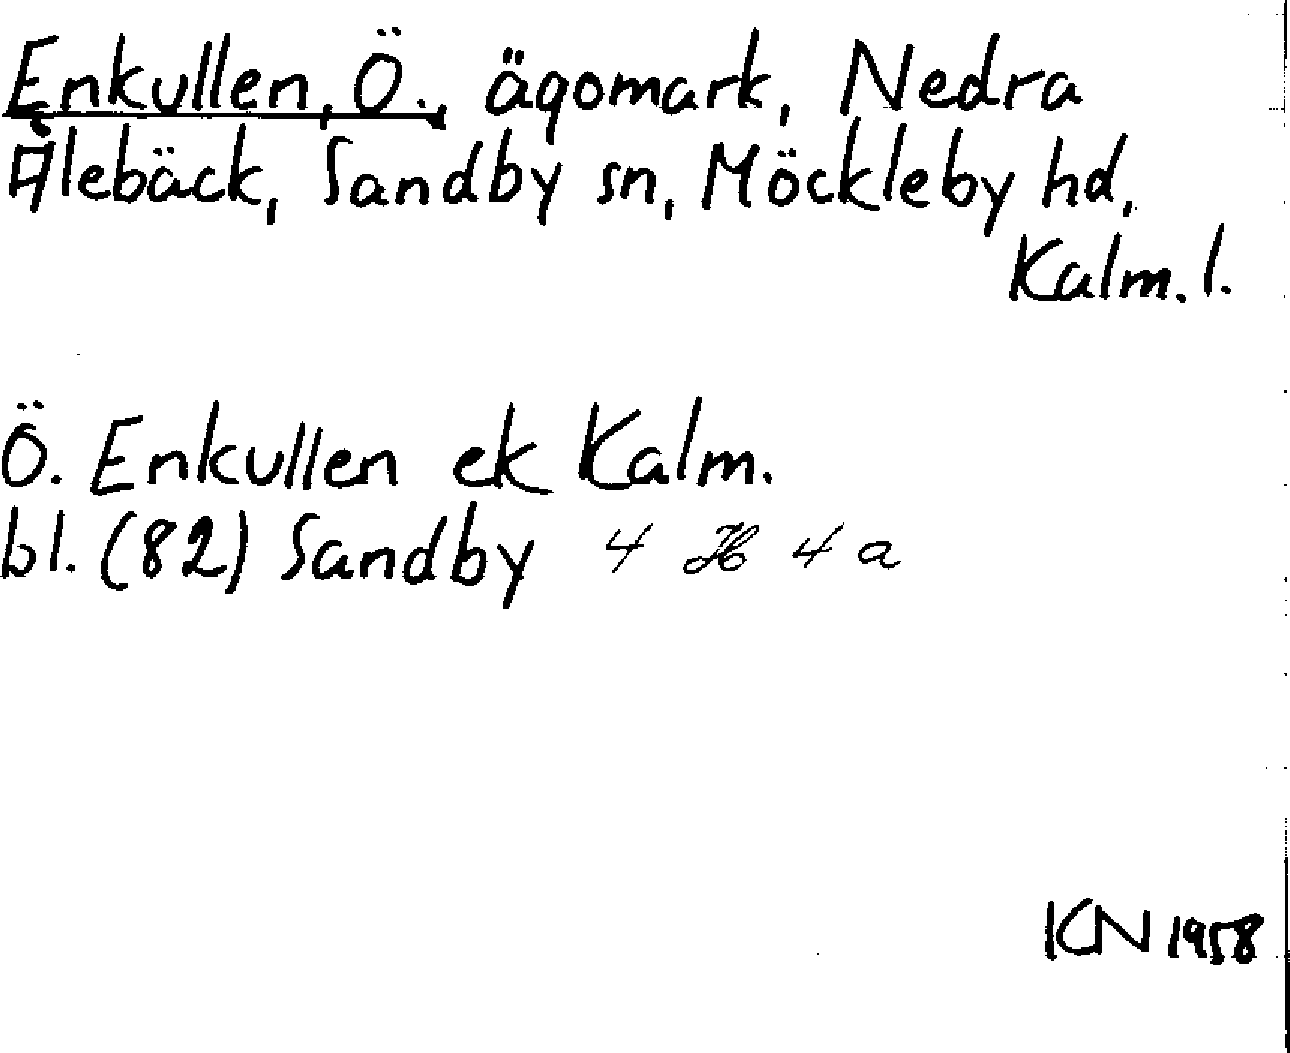 Enkullen, Ö., ägomark, Nedra
Ålebäck, Sandby sn, Möckleby hd,
Kalm. l.
Ö. Enkullen ek Kalm.
bl. (82) Sandby 4 H 4 a
KN 1958